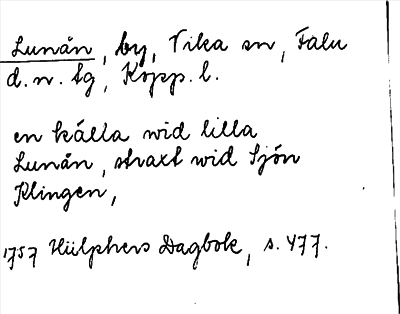 Lunån, by, Vika sn, Falu
d.n. tg, Kopp. l.
en källa wid lilla
Lunån, straxt wid Sjön
Klingen,
1757 Hülphers Dagbok, s. 477.